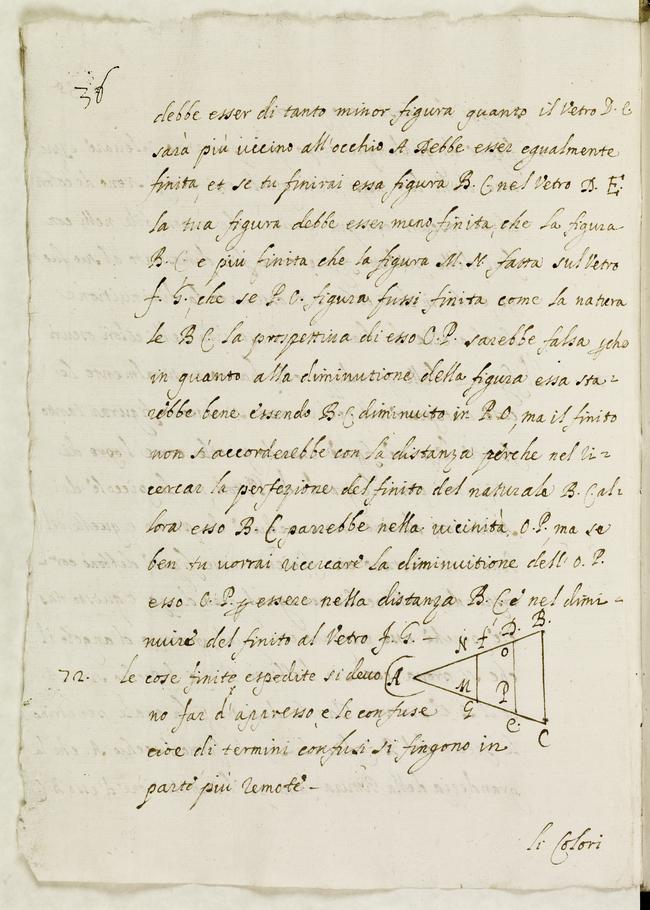 36
debbe esser di tanto minor figura quanto il Vetro D. E
sarà più vicino all'occhio A Debbe esser egualmente
finita, et se tu finirai essa figura B. C. nel Vetro D. E.
la tua figura debbe esser meno finita, che la figura
B. C. e più finita che la figura M. N. fatta sul Vetro
f. G., che se P. O. figura fussi finita come la natura
le B C. la prospettiva di esso O. P. sarebbe falsa, perche
in quanto alla diminutione della figura essa sta-
rebbe bene essendo B. C. diminuito in P. O, ma il finito
non s'accorderebbe con la distanza perche nel ri-
cercar la perfezione del finito del naturale B. C. al-
lora esso B. C. parrebbe nella vicinità O. P. ma se
ben tu vorrai ricercare la diminuitione dell' O. P.
esso O. P. par essere nella distanza B. C. e nel dimi-
nuire del finito al Vetro f. G. -
72. le cose finite espedite si devo
no far d'appresso, e le confuse
cioe di termini confusi si fingono in
parte più remote -
N f D. B.
O
A
M P
G
e C
li Colori